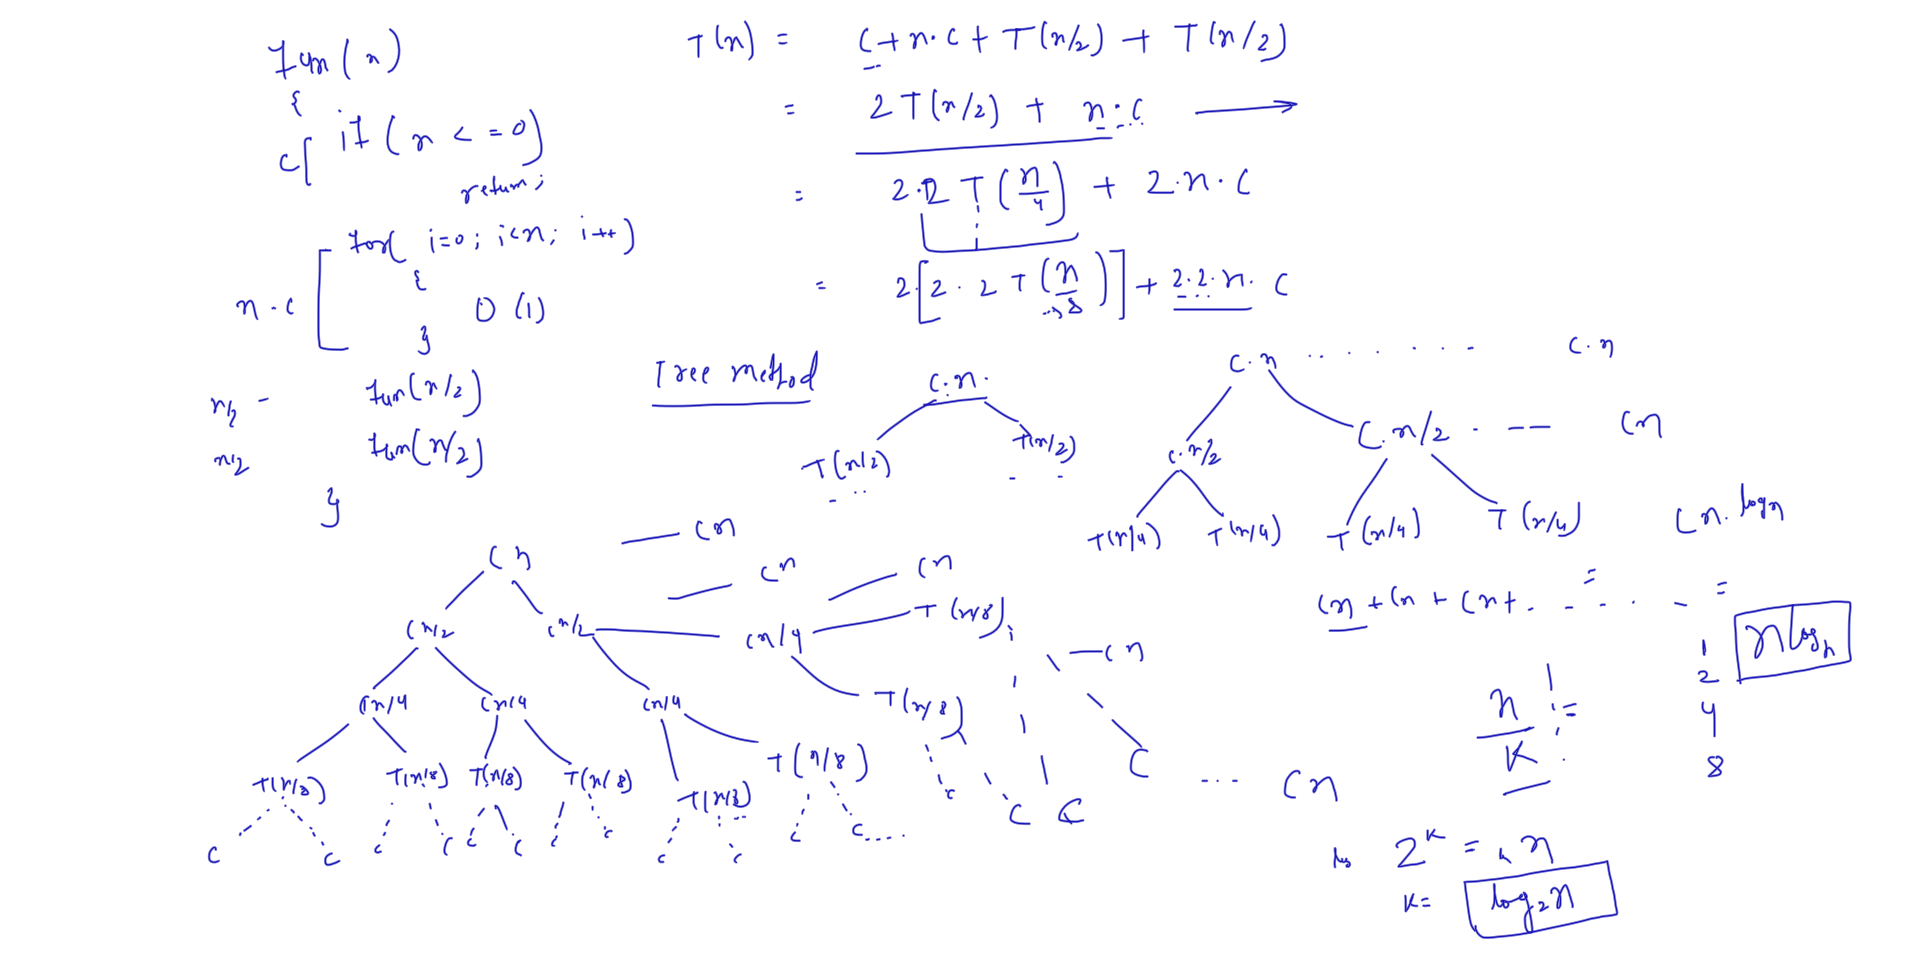 fun(n)
{
c[ if(n <= 0)
return;
for( i=0; i<n; i++)
{
n.c [ O(1)
}
n/2 - fun(n/2)
n/2 fun(n/2)
}
T(n) = C + n.C + T(n/2) + T(n/2)
= 2T(n/2) + n.C →
= 2.2 T(n/4) + 2.n.C
= 2[2.2 T(n/8)] + 2.2.n.C
Tree method
C.n.
T(n/2) T(n/2)
C.n ....... C.n
C.n/2 C.n/2 . -- Cn
T(n/4) T(n/4) T(n/4) T(n/4)
Cn.logn
Cn + Cn + Cn + . - - . . - =
nlogn
Cn — Cn
Cn/2 Cn/2 — Cn
Cn/4 Cn/4 Cn/4 Cn/4 — Cn
T(n/8) T(n/8) T(n/8) T(n/8) T(n/8) T(n/8) T(n/8) T(n/8)
— Cn
C C C C C C C C C C C C.... C C C C ... Cn
1
2
4
8
n/K =
2^K = n
K = log₂n